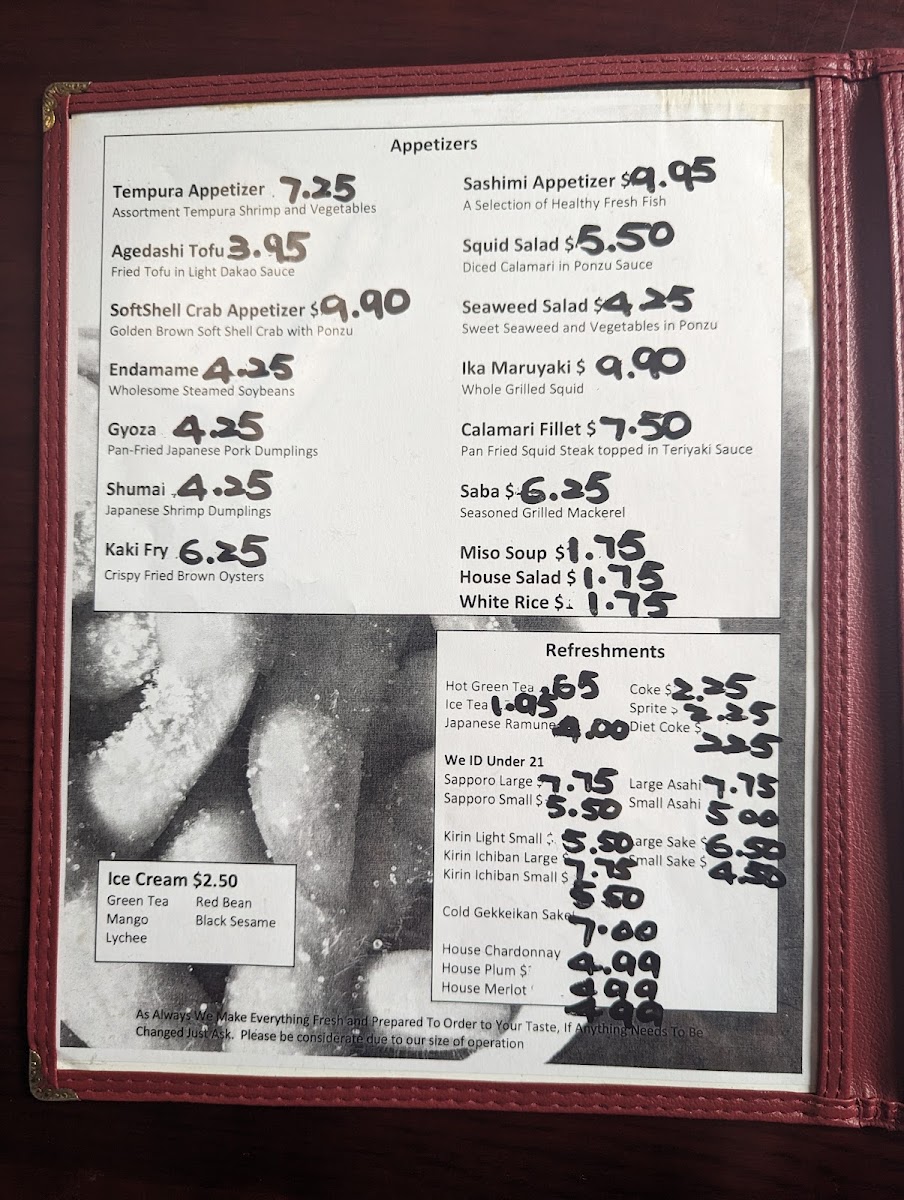 Appetizers
Tempura Appetizer 7.25
Assortment Tempura Shrimp and Vegetables
Agedashi Tofu 3.95
Fried Tofu in Light Dakao Sauce
SoftShell Crab Appetizer $9.90
Golden Brown Soft Shell Crab with Ponzu
Endamame 4.25
Wholesome Steamed Soybeans
Gyoza 4.25
Pan-Fried Japanese Pork Dumplings
Shumai 4.25
Japanese Shrimp Dumplings
Kaki Fry 6.25
Crispy Fried Brown Oysters
Sashimi Appetizer $9.95
A Selection of Healthy Fresh Fish
Squid Salad $5.50
Diced Calamari in Ponzu Sauce
Seaweed Salad $4.25
Sweet Seaweed and Vegetables in Ponzu
Ika Maruyaki $ 9.90
Whole Grilled Squid
Calamari Fillet $7.50
Pan Fried Squid Steak topped in Teriyaki Sauce
Saba $6.25
Seasoned Grilled Mackerel
Miso Soup $1.75
House Salad $1.75
White Rice $1.75
Refreshments
Hot Green Tea .65
Ice Tea 1.95
Japanese Ramune 4.00
Coke $2.25
Sprite 2.25
Diet Coke $ 225
We ID Under 21
Sapporo Large $7.75
Sapporo Small $5.50
Large Asahi 7.75
Small Asahi 5 00
Kirin Light Small 5.50
Kirin Ichiban Large 7.75
Kirin Ichiban Small $ 5 50
arge Sake $6.50
Small Sake $ 4.50
Cold Gekkeikan Sake 7.00
House Chardonnay 4.99
House Plum $ 499
House Merlot 499
Ice Cream $2.50
Green Tea Red Bean
Mango Black Sesame
Lychee
As Always We Make Everything Fresh and Prepared To Order to Your Taste, If Anything Needs To Be
Changed Just Ask. Please be considerate due to our size of operation